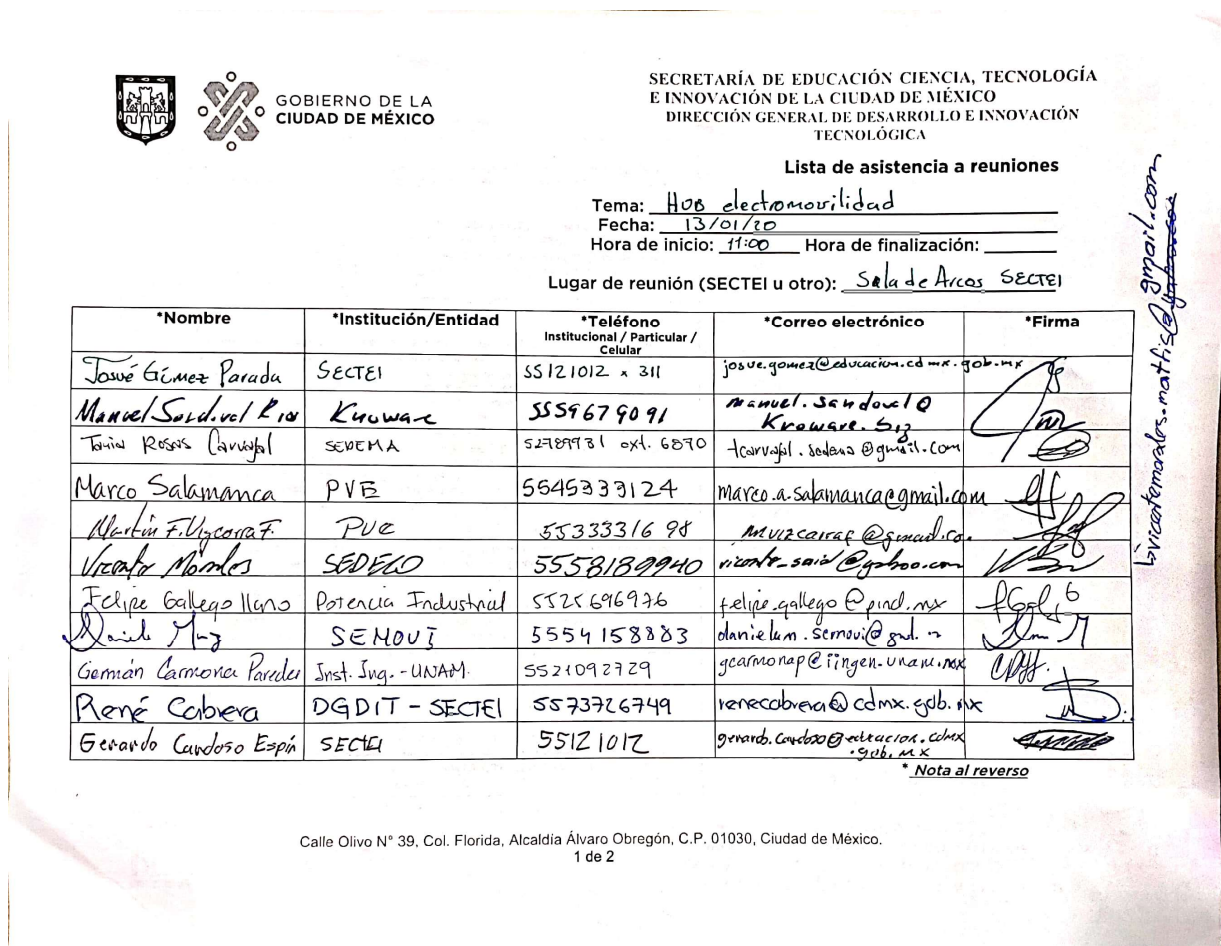 GOBIERNO DE LA
CIUDAD DE MÉXICO
SECRETARÍA DE EDUCACIÓN CIENCIA, TECNOLOGÍA
E INNOVACIÓN DE LA CIUDAD DE MÉXICO
DIRECCIÓN GENERAL DE DESARROLLO E INNOVACIÓN
TECNOLÓGICA
Lista de asistencia a reuniones
Tema: HUB electromovilidad
Fecha: 13/01/20
Hora de inicio: 11:00 Hora de finalización:
Lugar de reunión (SECTEI u otro): Sala de Arcos SECTEI
*Nombre *Institución/Entidad *Teléfono *Correo electrónico *Firma
Institucional / Particular /
Celular
Josué Gómez Parada SECTEI 55121012 x 311 josue.gomez@educacion.cdmx.gob.mx
Manuel Sandoval Rios Knoware 5559679091 manuel.sandoval@
Knoware.biz
Tania Rosas Carvajal SEDEMA 52789931 ext. 6870 tcarvajal.sedema@gmail.com
Marco Salamanca PVE 5545333124 marco.a.salamanca@gmail.com
Martín F. Vizcarra F. PVE 5533331698
Vicente Morales SEDECO 5558189940 vicente_said@yahoo.com
Felipe Gallego Llano Potencia Industrial 5525696976 felipe.gallego@pind.mx
SEMOVI 5554158883
Germán Carmona Paredes Inst. Ing. - UNAM. 5521092729 gcarmonap@iingen.unam.mx
René Cabrera DGDIT - SECTEI 5573726749 renecabrera@cdmx.gob.mx
Gerardo Cardoso Espín SECTEI 55121012 gerardo.cardoso@educacion.cdmx
.gob.mx
* Nota al reverso
vicentemorales.mattis@gmail.com
Calle Olivo N° 39, Col. Florida, Alcaldía Álvaro Obregón, C.P. 01030, Ciudad de México.
1 de 2